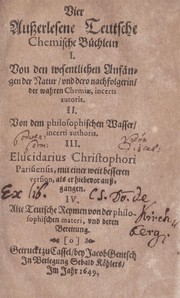 Vier
Außerlesene Teutsche
Chemische Büchlein
I.
Von den wesentlichen Anfän-
gen der Natur / und dero nachfolgerin /
der wahren Chemiæ, incerti
autoris.
II.
Von dem philosophischen Wasser /
incerti authoris.
III.
Elucidarius Christophori
Parisiensis, mit einer weit besseren
version, als er hiebevor auß-
gangen.
Ex lib. de
IV.
Alte Teutsche Reymen von der philo-
sophischen materi, und deren
Bereitung.
[o]
Getruckt zu Cassel / bey Jacob Gentsch
In Verlegung Sebald Köhlers /
Im Jahr 1649.